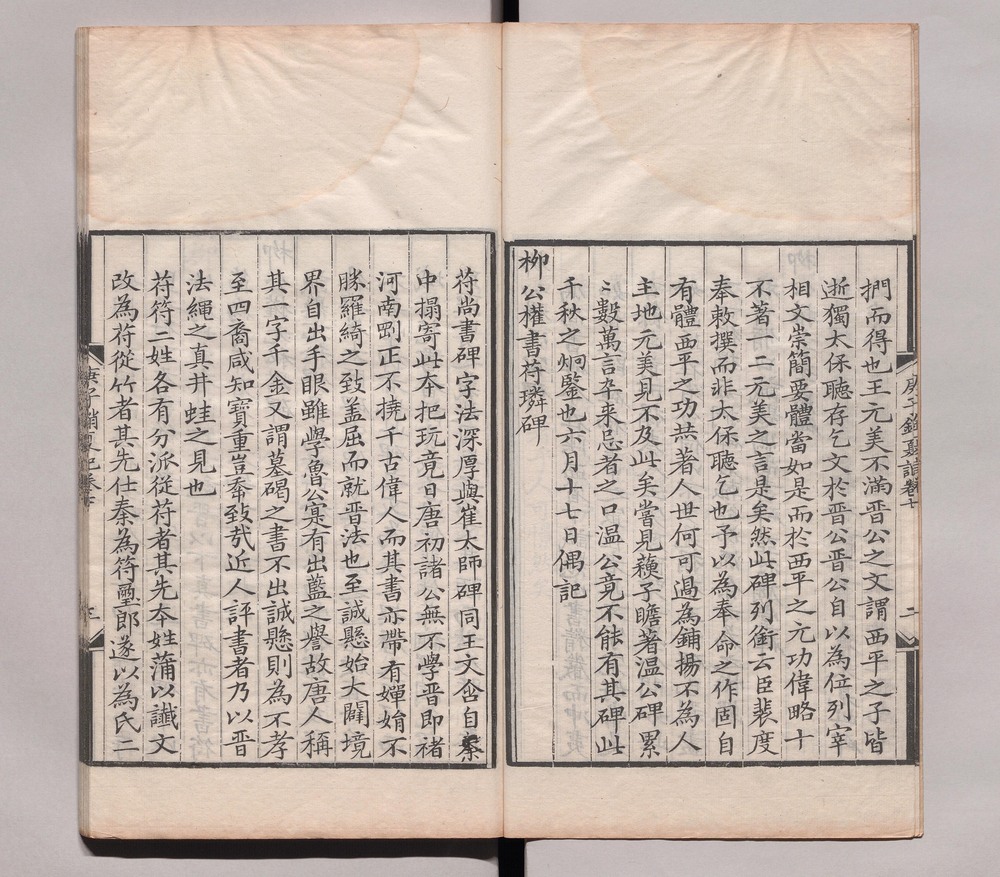 捫而得也王元美不滿晉公之文謂西平之子皆
逝獨太保聽存乞文於晉公晉公自以為位列宰
相文崇簡要體當如是而於西平之元功偉略十
不著一二元美之言是矣然此碑列銜云臣裴度
奉敕撰而非太保聽乞也予以為奉命之作固自
有體西平之功共著人世何可過為鋪揚不為人
主地元美見不及此矣嘗見穤子瞻著溫公碑累
〻數萬言卒来忌者之口溫公竟不能有其碑此
千秋之炯鑒也六月十七日偶記
柳公權書苻璘碑
苻尚書碑字法深厚與崔太師碑同王文含自秦
中搨寄此本把玩竟日唐初諸公無不學晉即褚
河南剛正不撓千古偉人而其書亦帶有嬋娟不
勝羅綺之致盖屈而就晋法也至誠懸始大闢境
界自出手眼雖學魯公寔有出藍之譽故唐人稱
其一字千金又謂墓碣之書不出誠懸則為不孝
至四裔咸知寶重豈夲致哉近人評書者乃以晋
法繩之真井蛙之見也
苻符二姓各有分派從苻者其先本姓蒲以讖文
改為苻從竹者其先仕秦為符璽郎遂以為氏二
庚子銷夏記卷七
二